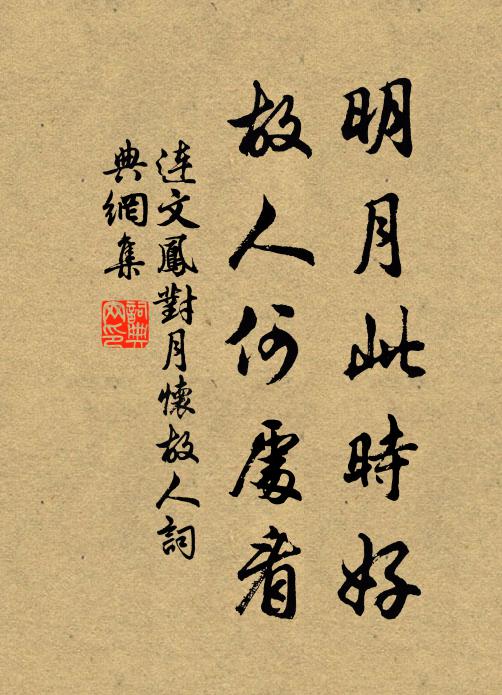 明月此時好
故人何處看
連文鳳對月懷故人詞
典網集
詞典網印